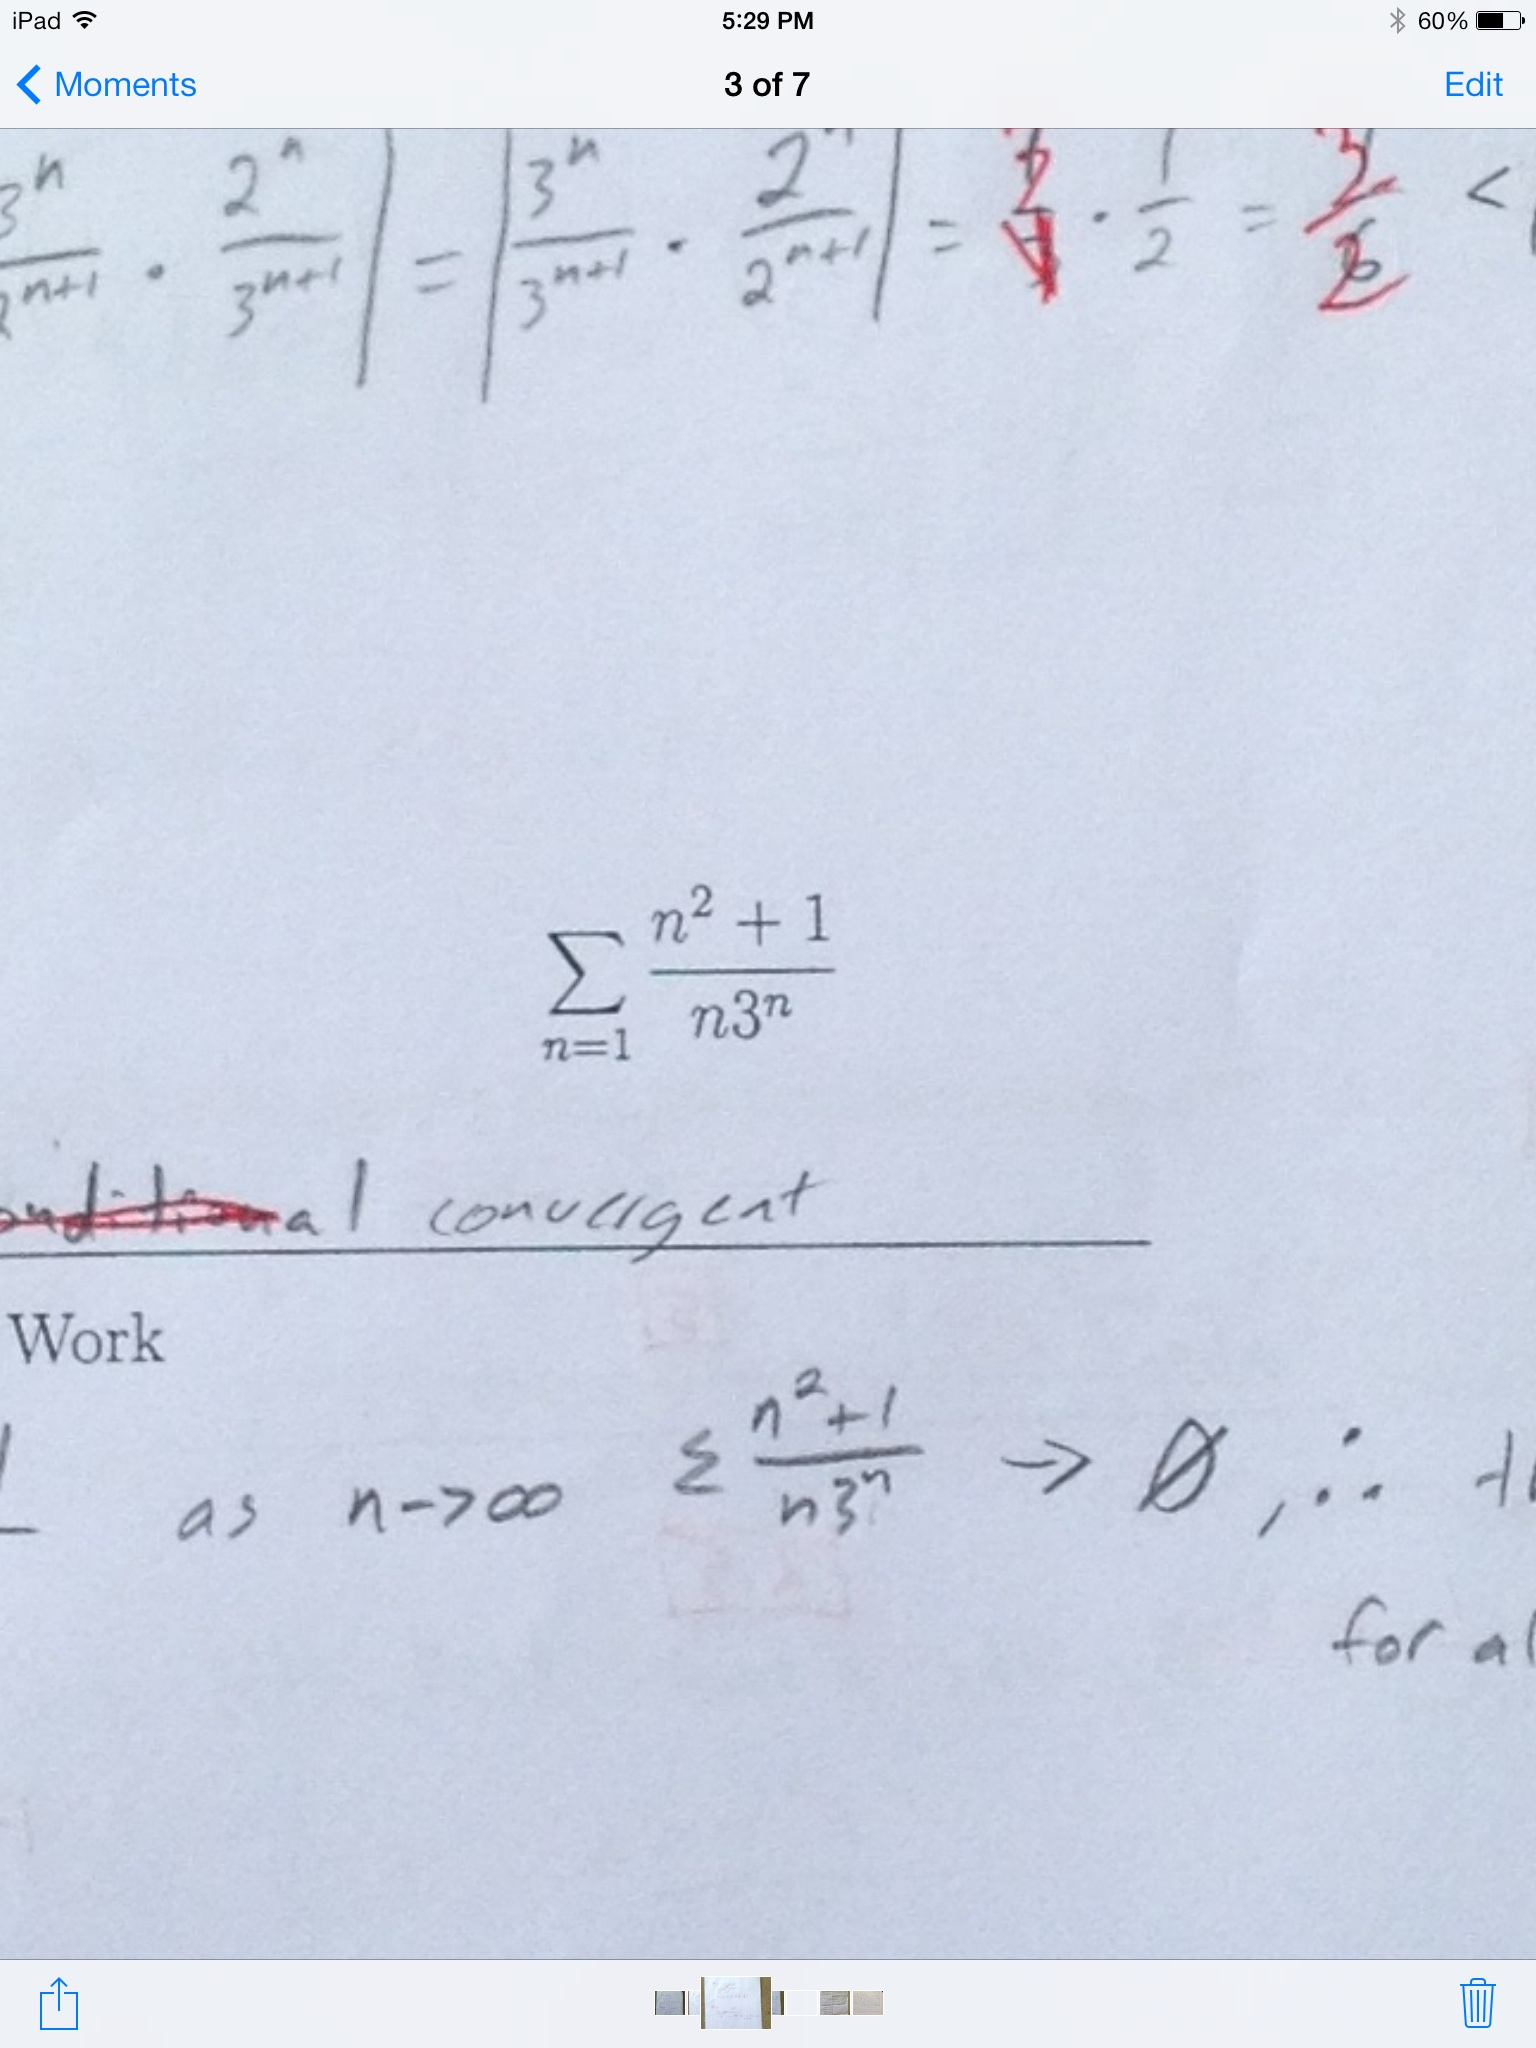 iPad 5:29 PM 60%
Moments 3 of 7 Edit
3^n / 2^{n+1} · 2^n / 3^{n+1} | = | 3^n / 3^{n+1} · 2^n / 2^{n+1} | = · 1/2 = <
∑_{n=1} (n² + 1) / (n3^n)
onditional convergent
Work
as n->∞ Σ (n²+1) / (n3^n) → Ø, ∴
for al